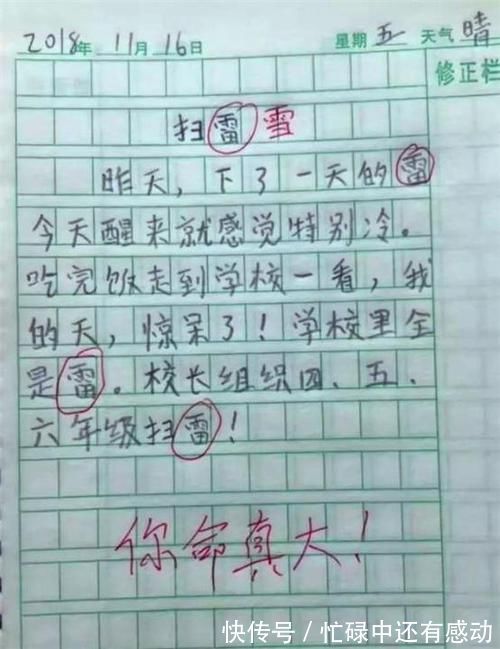 2018年 11月 16日 星期 五 天气 晴
修正栏
扫雷 雪
昨天，下了一天的雷
今天醒来就感觉特别冷。
吃完饭走到学校一看，我
的天，惊呆了！学校里全
是雷。校长组织四、五、
六年级扫雷！
你命真大！
快传号／忙碌中还有感动